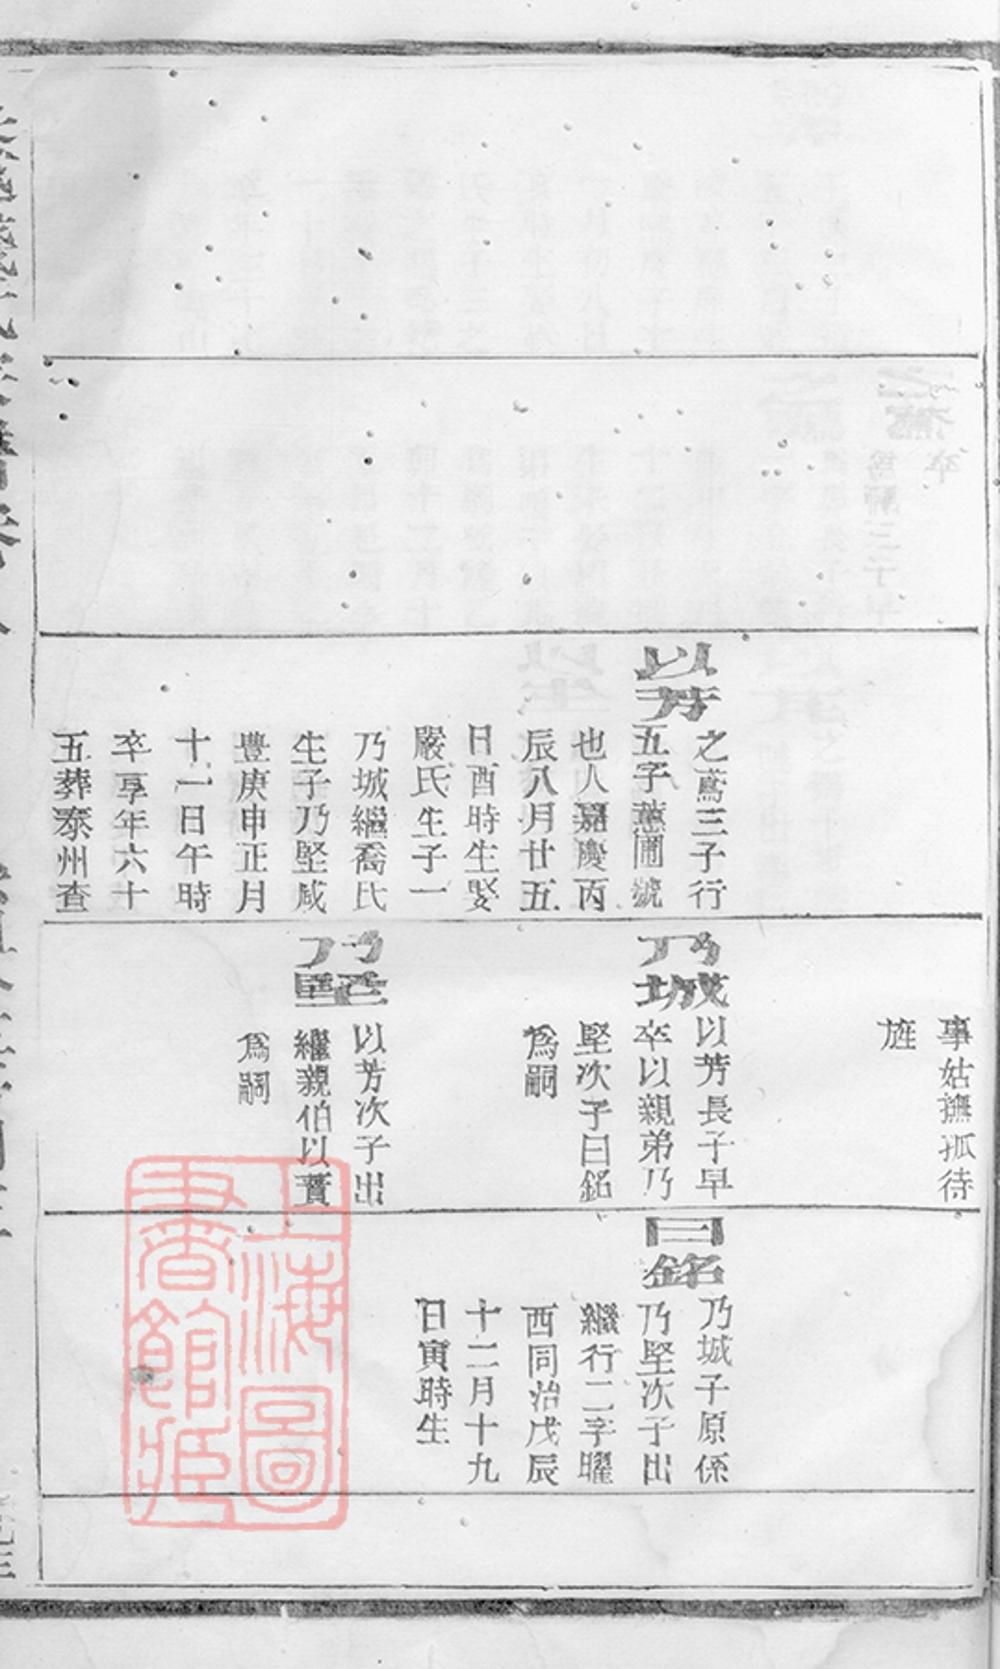 以芳
之鳶三子行
五字蕙圃號
也人嘉慶丙
辰八月廿五
日酉時生娶
嚴氏生子一
乃城繼喬氏
生子乃堅咸
豐庚申正月
十一日午時
卒享年六十
五葬泰州查
事姑撫孤待
旌
乃城
以芳長子早
卒以親弟乃
堅次子曰銘
爲嗣
乃堅
以芳次子出
繼親伯以蕡
爲嗣
曰銘
乃城子原係
乃堅次子出
繼行二字曜
西同治戊辰
十二月十九
日寅時生
上海圖書館藏